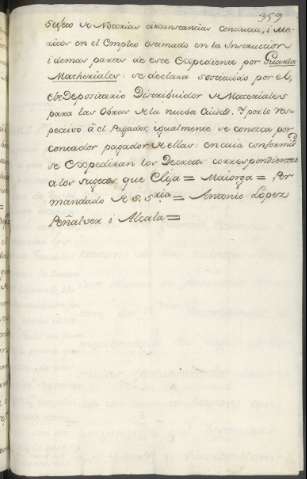 359
Sujeto de Notorias circunstancias conducta, i me-
ritos en el Empleo creamado en la Instruccion
i demas partes de este Expediente por Guarda
Matheriales: se declara por el
Depositario Distribuidor de Materiales
para las Obras de la nueba Ciudad. Y por lo res-
pectivo á el Pagador, igualmente se conosca por
contador pagador de ellas: en cuia conformd
se Expediran los Decretos correspondientes
a los Sugetos que Elija = Maiorga = Por
mandado de S. Sria = Antonio Lopez
Peñalver i Alcala =